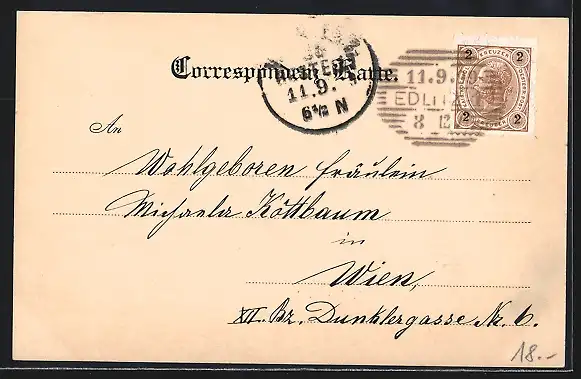 Correspondenz-Karte.
11.9.
6½ N
11.9.
EDLITZ
8 12
2 KREUZER 2
2 KREUZER 2
An
Wohlgeboren Fräulein
Michaela Köttbaum
in
Wien,
XII. Bz. Dunklergasse Nr. 6.
18.-